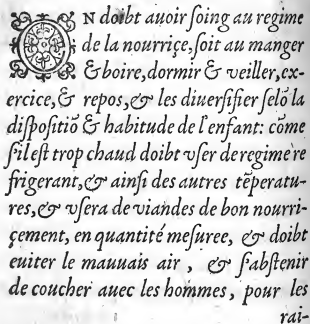 ON doibt auoir ſoing au regime
de la nourriçe, ſoit au manger
& boire, dormir & veiller, ex-
ercice, & repos, & les diuerſifier ſelõ la
diſpoſitiõ & habitude de l'enfant: cõme
ſ'il eſt trop chaud doibt vſer de regime re
frigerant, & ainſi des autres tẽperatu-
res, & vſera de viandes de bon nourri-
çement, en quantité meſuree, & doibt
euiter le mauuais air, & ſ'abſtenir
de coucher auec les hommes, pour les
rai-